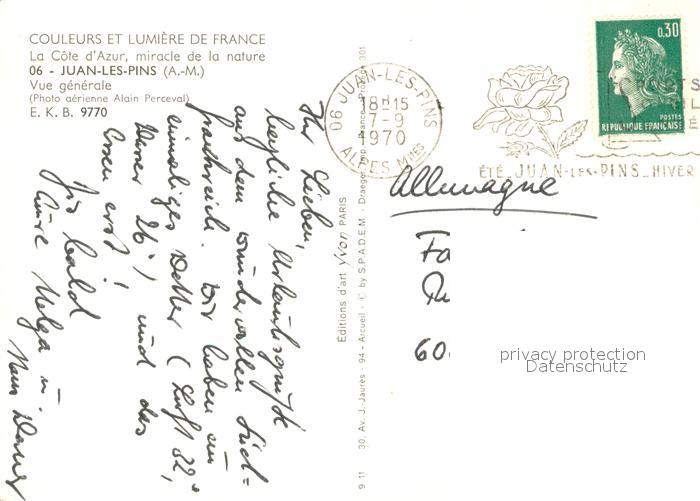 COULEURS ET LUMIÈRE DE FRANCE
La Côte d'Azur, miracle de la nature
06 - JUAN-LES-PINS (A.-M.)
Vue générale
(Photo aérienne Alain Perceval)
E. K. B. 9770
Ihr Lieben,
herzliche Urlaubsgrüße
aus dem wundervollen Süd=
frankreich. Wir haben ein
einmaliges Wetter (Luft 32,
Wasser 26°) und das
Essen erst!
Bis bald
Eure Helga u.
Éditions d'art Yvon PARIS
30, Av. J.-Jaurès - 94 - Arcueil - © by S.P.A.D.E.M. - Draeger, Imp. France
9 11
06 JUAN-LES-PINS
18H15
7-9
1970
ALPES Mmes
0,30
POSTES
REPUBLIQUE FRANÇAISE
ÉTÉ_JUAN-LES-PINS_HIVER
Allemagne
Fa
60
privacy protection
Datenschutz